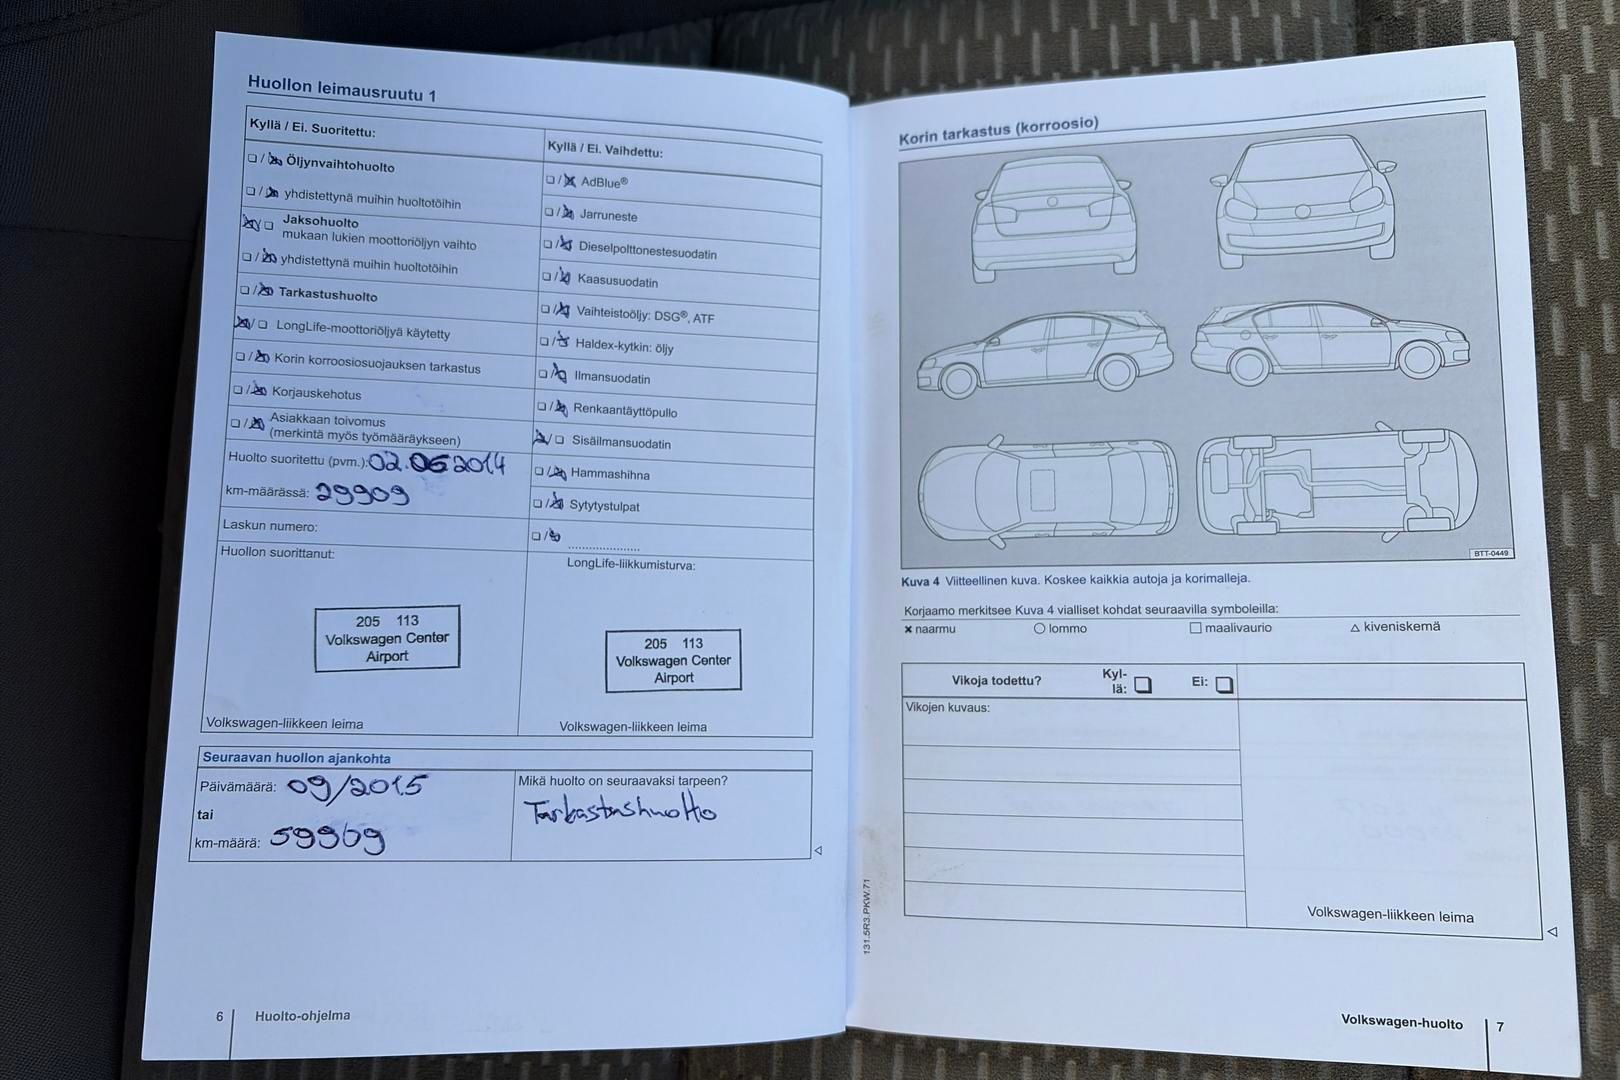 Huollon leimausruutu 1
Kyllä / Ei. Suoritettu:
❏ / ☒ Öljynvaihtohuolto
❏ / ☒ yhdistettynä muihin huoltotöihin
☒ / ❏ Jaksohuolto
mukaan lukien moottoriöljyn vaihto
❏ / ☒ yhdistettynä muihin huoltotöihin
❏ / ☒ Tarkastushuolto
☒ / ❏ LongLife-moottoriöljyä käytetty
❏ / ☒ Korin korroosiosuojauksen tarkastus
❏ / ☒ Korjauskehotus
❏ / ☒ Asiakkaan toivomus
(merkintä myös työmääräykseen)
Huolto suoritettu (pvm.): 02.06 2014
km-määrässä: 29909
Laskun numero:
Huollon suorittanut:
205 113
Volkswagen Center
Airport
Volkswagen-liikkeen leima
Kyllä / Ei. Vaihdettu:
❏ / ☒ AdBlue®
❏ / ☒ Jarruneste
❏ / ☒ Dieselpolttonestesuodatin
❏ / ☒ Kaasusuodatin
❏ / ☒ Vaihteistoöljy: DSG®, ATF
❏ / ☒ Haldex-kytkin: öljy
❏ / ☒ Ilmansuodatin
❏ / ☒ Renkaantäyttöpullo
☒ / ❏ Sisäilmansuodatin
❏ / ☒ Hammashihna
❏ / ☒ Sytytystulpat
❏ / ☒ ....................
LongLife-liikkumisturva:
205 113
Volkswagen Center
Airport
Volkswagen-liikkeen leima
Seuraavan huollon ajankohta
Päivämäärä: 09/2015
tai
km-määrä: 59969
Mikä huolto on seuraavaksi tarpeen?
Tarkastushuolto
6 Huolto-ohjelma
Korin tarkastus (korroosio)
BTT-0449
Kuva 4 Viitteellinen kuva. Koskee kaikkia autoja ja korimalleja.
Korjaamo merkitsee Kuva 4 vialliset kohdat seuraavilla symboleilla:
✖ naarmu ○ lommo □ maalivaurio △ kiveniskemä
Vikoja todettu? Kyl-
lä: ❏ Ei: ❏
Vikojen kuvaus:
Volkswagen-liikkeen leima
131.5R3.PKW.71
Volkswagen-huolto 7